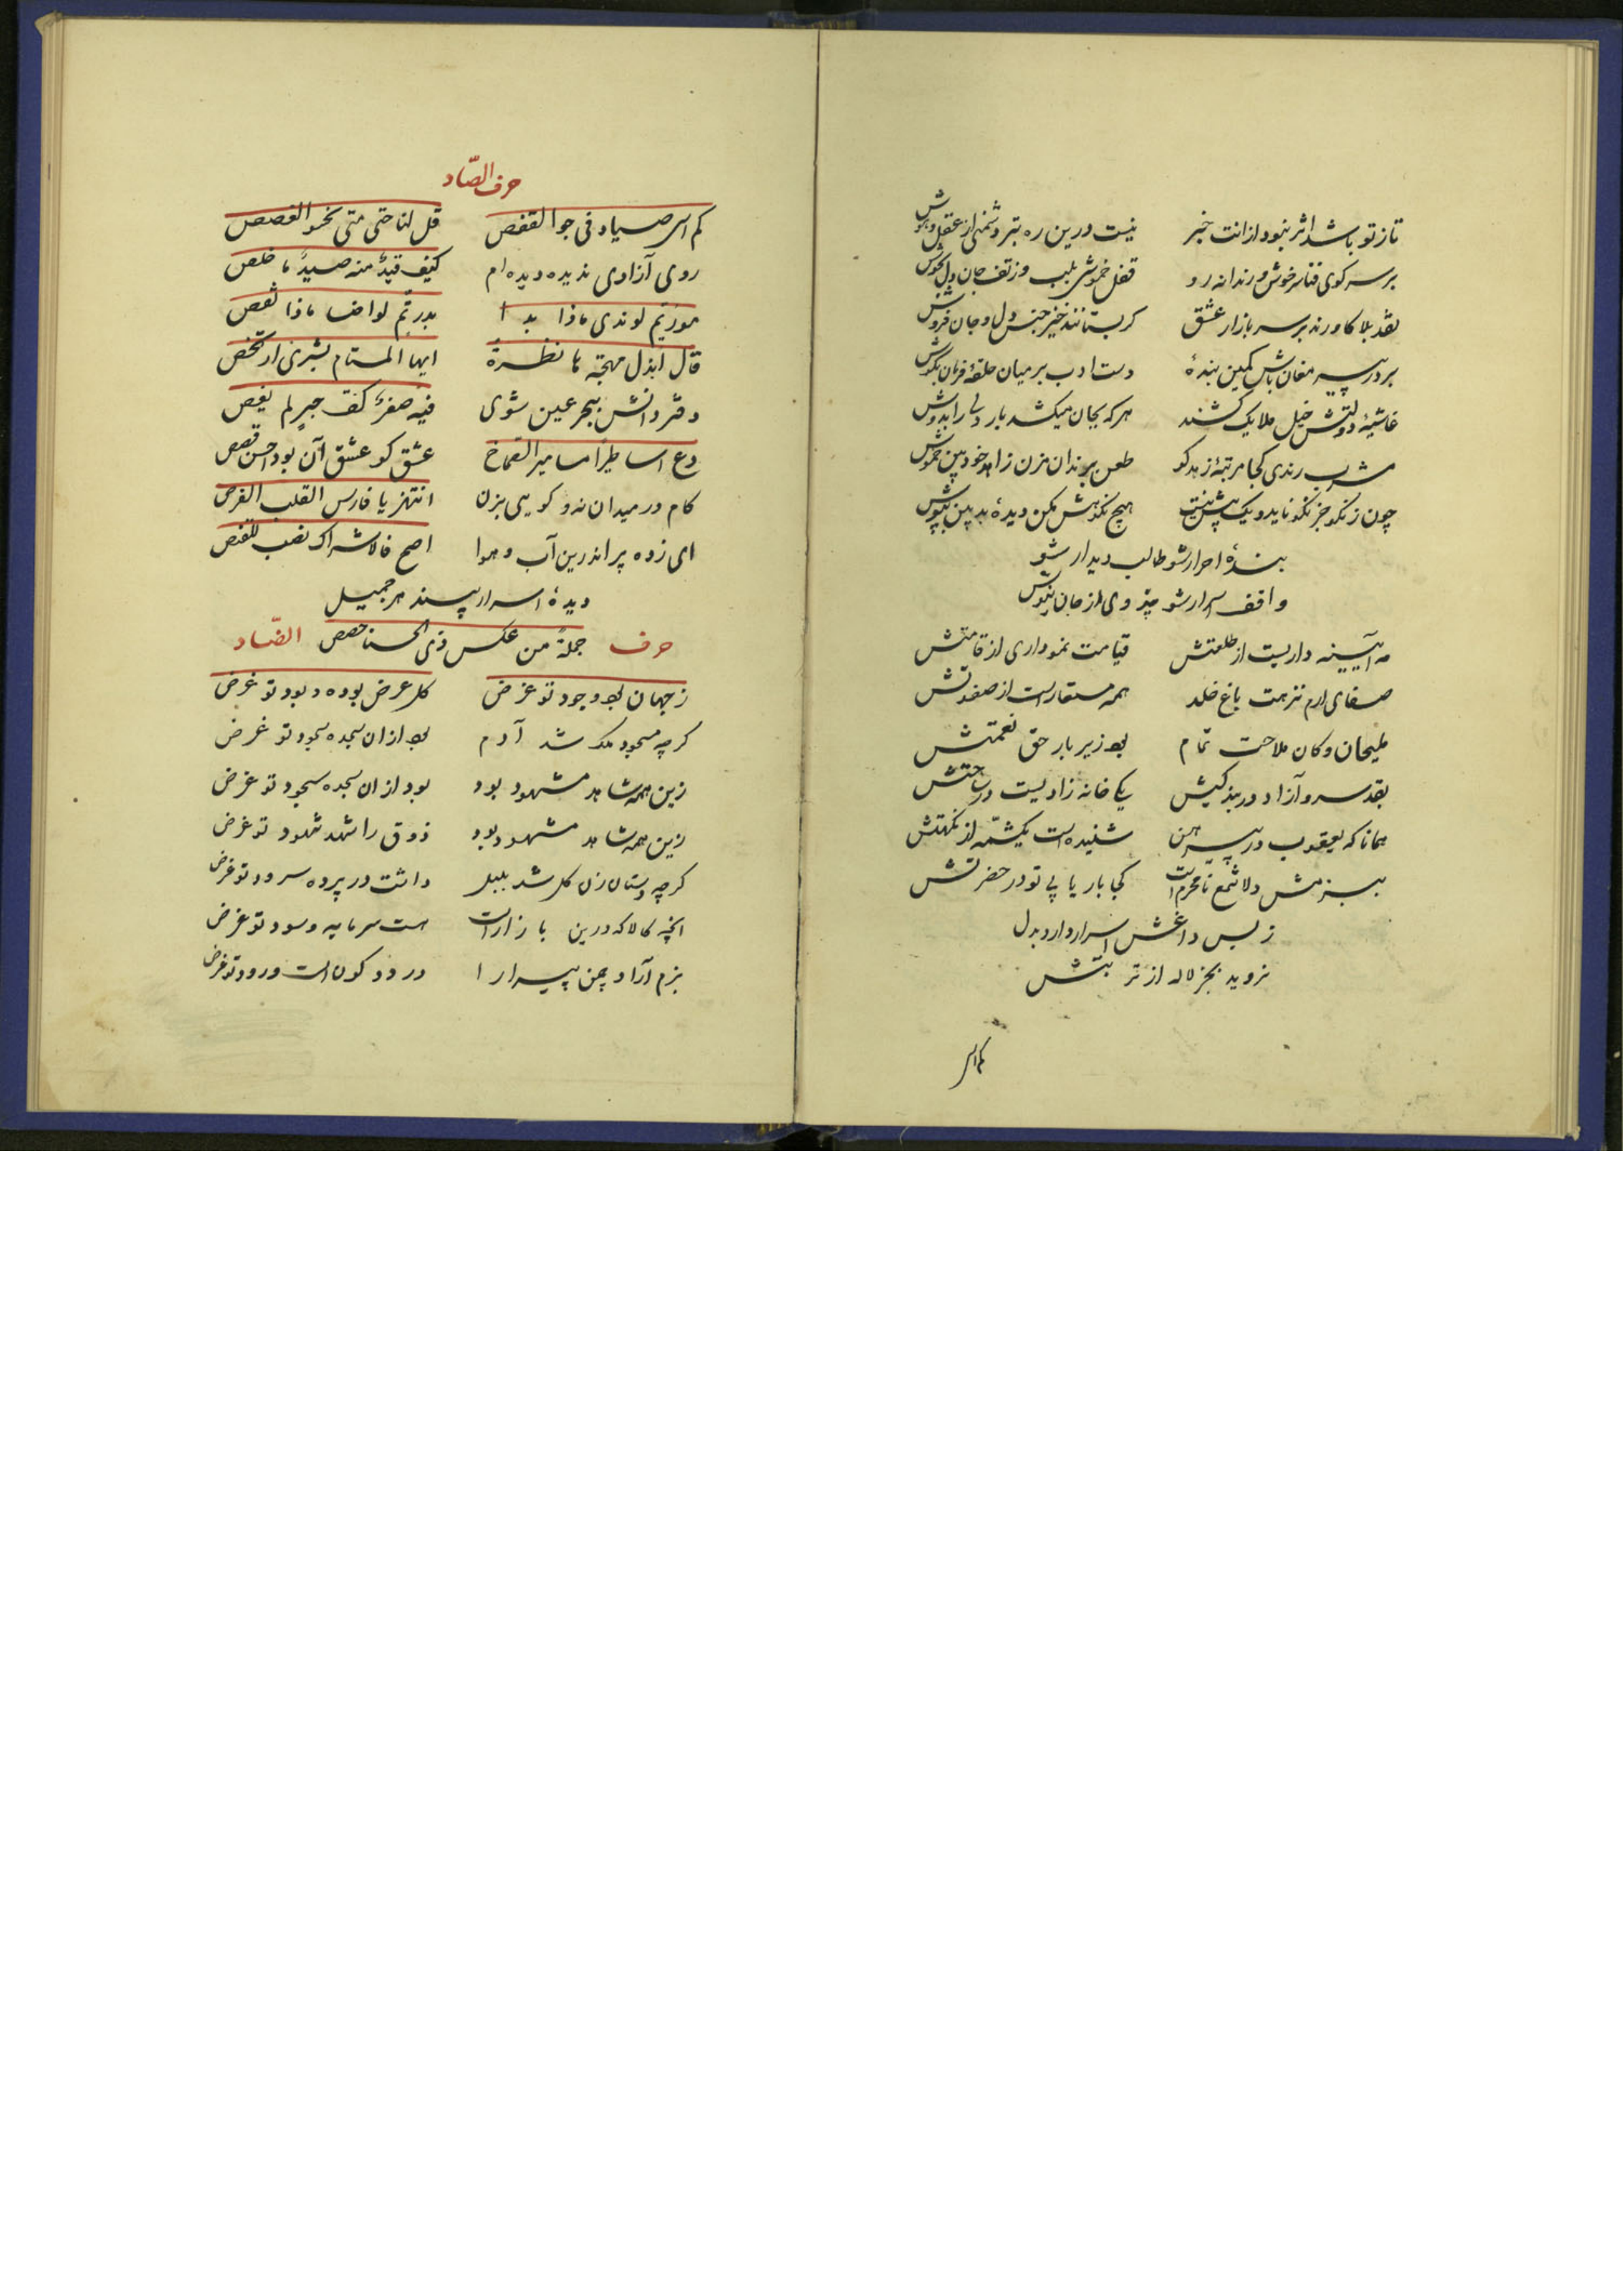 تا ز تو باشد اثر نبود از انت خبر نیست درین ره بتر دشمنی از عقل و هوش
بر سر کوی فنا سرخوش و رندانه رو قفل خموشی بلب وز تف جان دل بجوش
نقد بلا کاورند بر سر بازار عشق گر بستانند خیز جنس دل و جان فروش
بر در پیر مغان باش کمین بندهٔ دست ادب بر میان حلقهٔ فرمان بگوش
غاشیهٔ دولتش خیل ملایک کشند هر که بجان میکشد بار دلی را بدوش
مشرب رندی کجا مرتبهٔ زهد کو طعن برندان مزن زاهد خودبین خموش
چون ز نکو جز نکو ناید و یک بیش نیست هیچ نکوهش مکن دیدهٔ بدبین بپوش
بندهٔ احرار شو طالب دیدار شو
واقف اسرار شو پند وی از جان نیوش
مه آیینه داریست از طلعتش قیامت نموداری از قامتش
صفای ارم نزهت باغ خلد همه مستعار است از صفوتش
ملیحان و کان ملاحت تمام بود زیر بار حق نعمتش
بقد سرو آزاد در بند کیش یکی خانه زادیست در ساحتش
همانا که یعقوب در پیرهن شنیده است یکشمه از نکهتش
ببزمش دلا شمع نامحرم است کجا بار یابی تو در حضرتش
ز بس داغش اسرار دارد بدل
نروید بجز لاله از تربتش
کم اسر
حرف الصّاد
کم اسر صیاد فی جو القفص قل لنا حتی متی نحسو الغصص
روی آزادی ندیده دیده ام کیف قیدٌ منه صیدٌ ما خلص
مور تم لو ندی ماذا بدا بدر تم لو اضا ماذا نقص
قال ابذل مهجة ما نظرة ایها المستام بشری ارتخص
دفتر دانش ببحر عین شوی فیه صفرٌ کف حبر لم یغص
دع اساطیراً مسامیر الصماخ عشق گو عشق آن بود احسن قصص
گام در میدان نه و گویی بزن انتهز یا فارس القلب الفرص
ای زده پر اندرین آب و هوا اصح فالاشراک نصب للقنص
دیدهٔ اسرار بیند هر جمیل
حرف جملةً من عکس ذی الحسنا حصص الضّاد
ز جهان بود وجود تو غرض کل عرض بوده و بود تو غرض
گرچه مسجود ملک شد آدم بود از ان سجده سجود تو غرض
زین همه شاهد مشهود بود بود از ان سجده سجود تو غرض
زین همه شاهد مشهود بود ذوق را شهد شهود تو غرض
گرچه دستان زن گل شد بلبل داشت در پرده سرود تو غرض
آنچه کالا که درین بازار است هست سرمایه و سود تو غرض
بزم آزاد چمن پیرا را در دو کون است ورود تو غرض